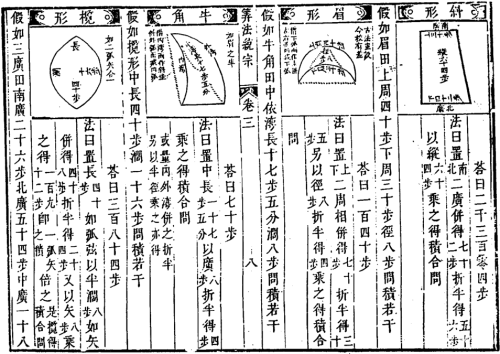 形斜
南廣
北廣
答曰二千三百零四步
乘之得積合問
假如眉田上周四十步下周三十步徑八步問積若干
形眉
答曰一百四十步
法曰置上下二周相併得七十步折半得三十五步另以徑八步折半得四步乘之得積合
問
假如牛角田中依灣長十七步五分濶八步問積若干
算法統宗 卷三 八
角牛
答曰七十步
法曰置中長一十七步五分以廣八步折半得四步
乘之得積合問
或量內外灣併之折半
另以半徑乘之亦得
假如欖形中長四十步濶一十六步問積若干
形欖
如二弧矢合一
長四十步
答曰三百八十四步
法曰置長四十步如弧弦以半濶八步如矢
併得四十八步折半得二十四步又以矢八步乘
之得一百九十二步即一弧矢積倍之是欖積合問
假如三廣田南廣二十六步北廣五十四步中廣一十八